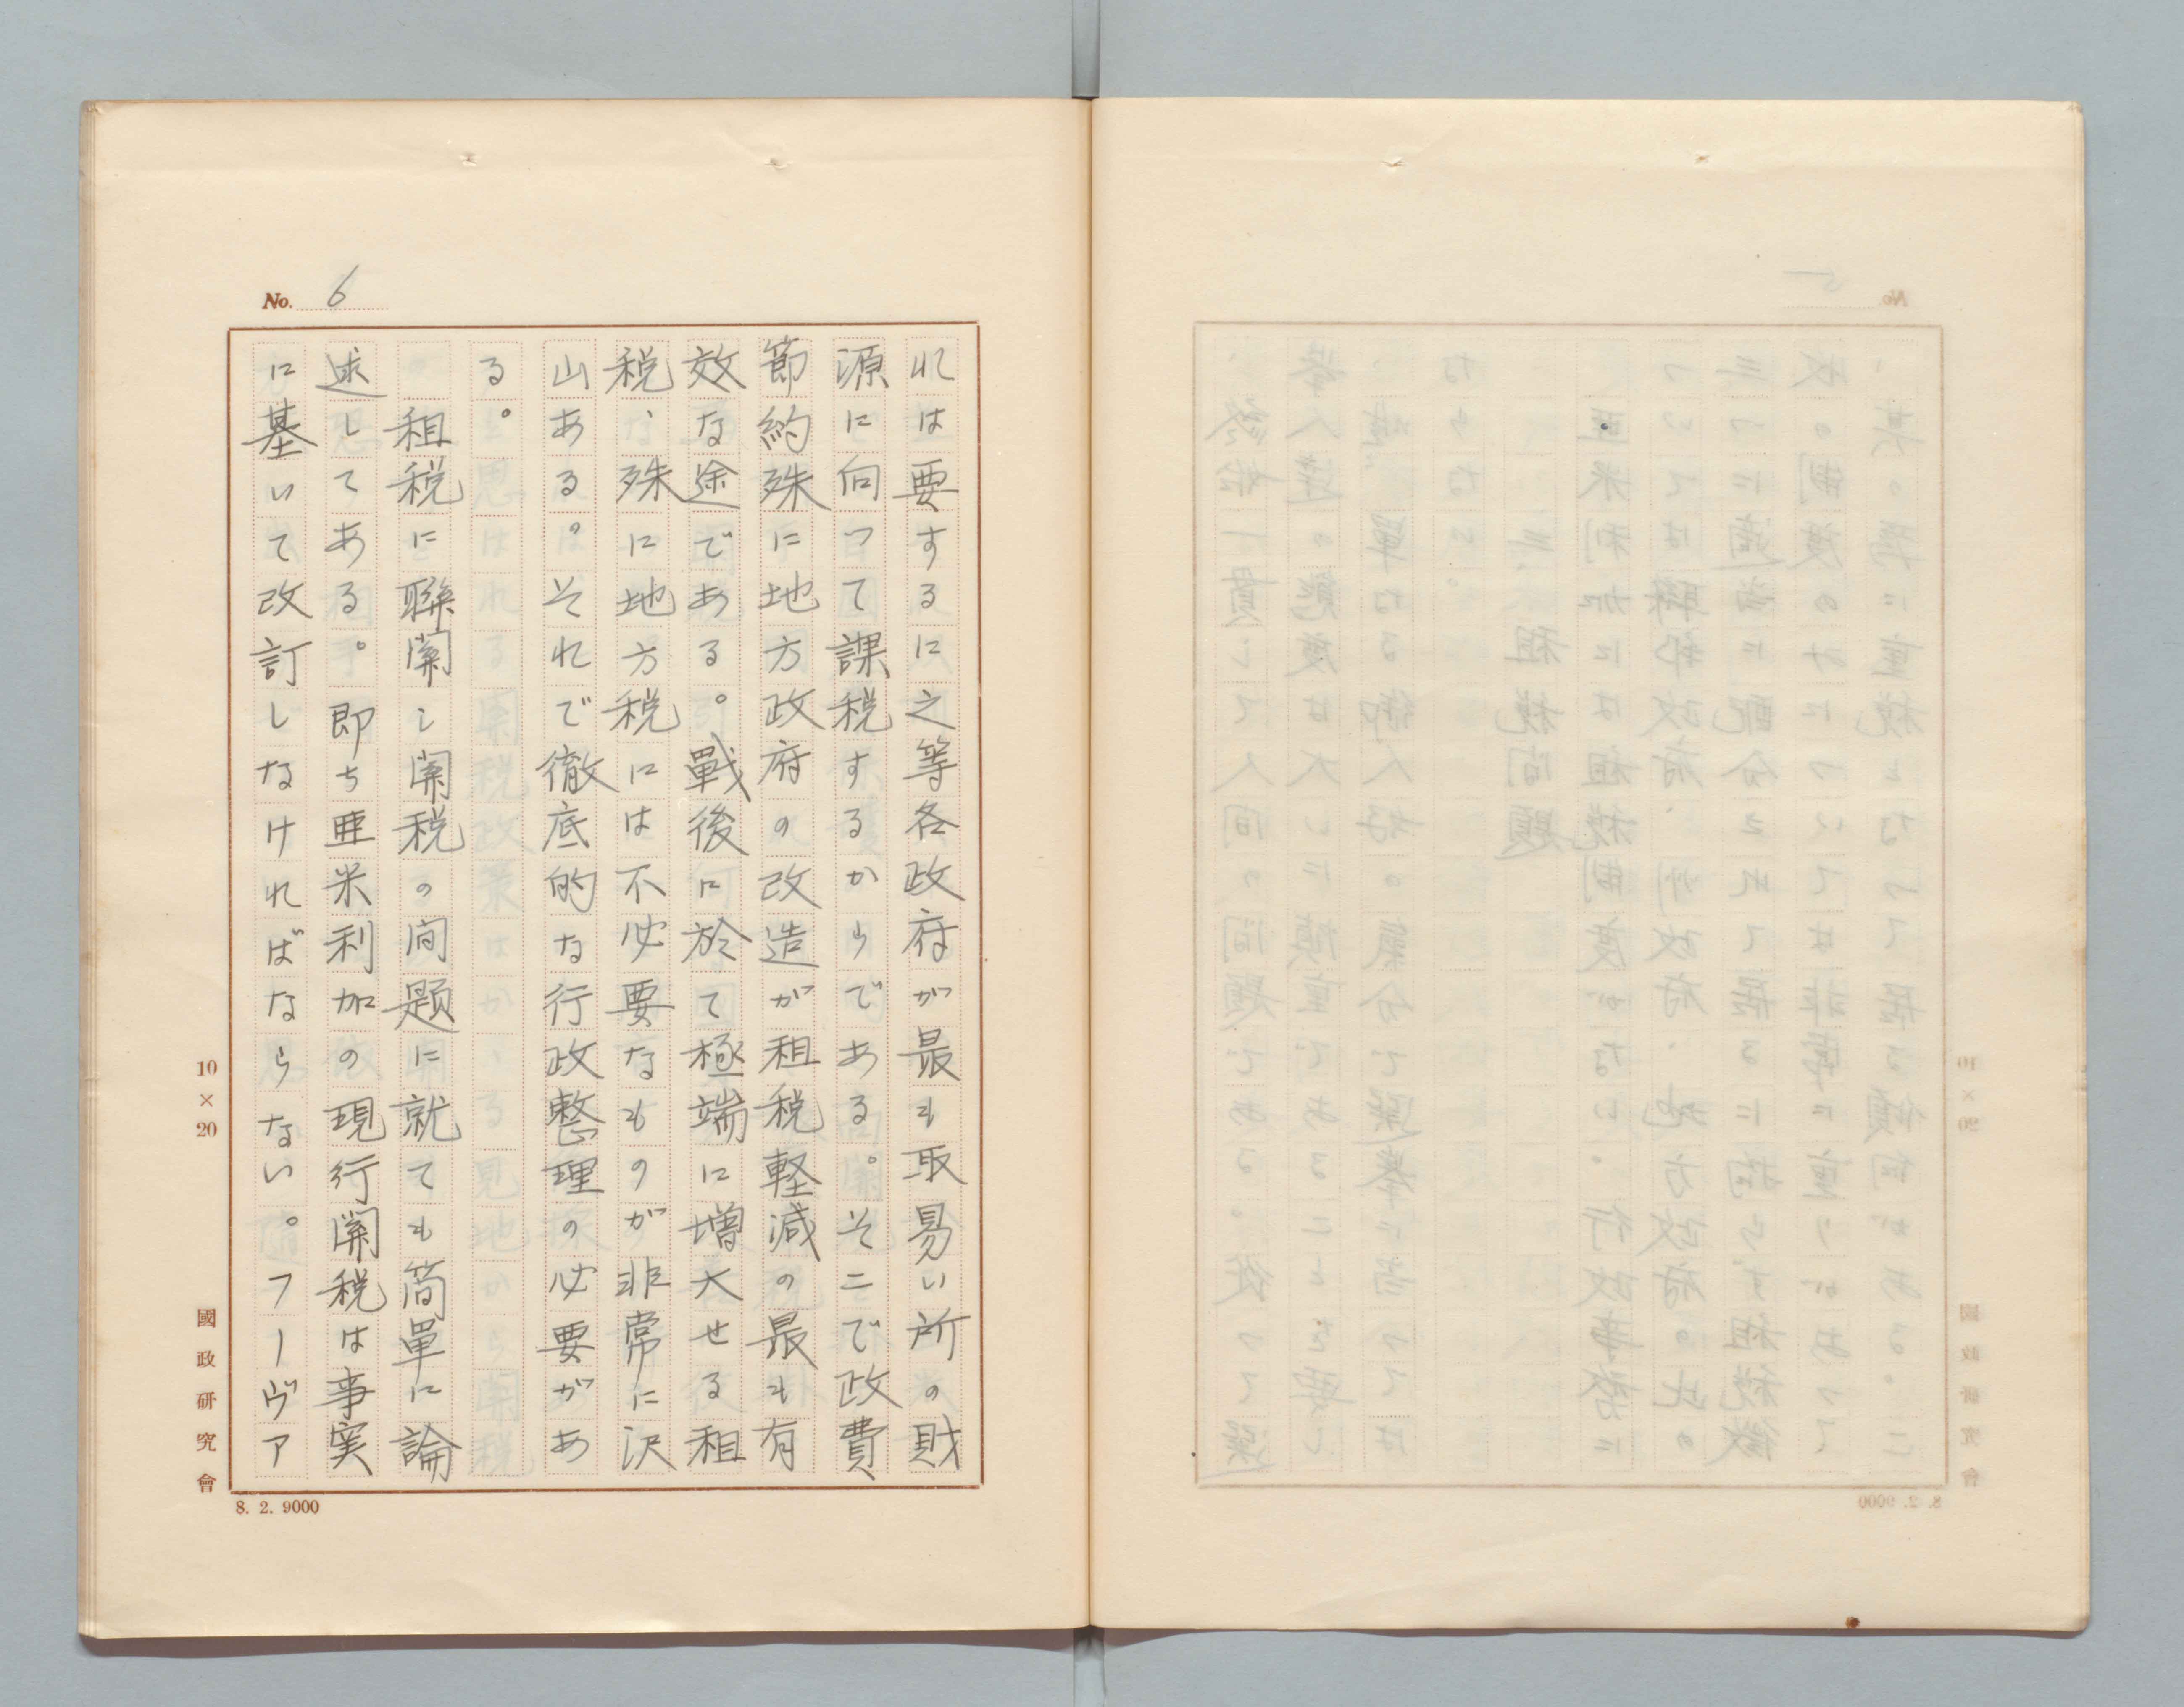 No. 6
れは要するに之等各政府が最も取易い所の財
源に向つて課税するからである。そこで政費
節約殊に地方政府の改造が租税軽減の最も有
效な途である。戰後に於て極端に増大せる租
税、殊に地方税には不必要なものが非常に沢
山ある。それで徹底的な行政整理の必要があ
る。
租税に聯関し関税の問題に就ても简單に論
述してある。即ち亜米利加の現行関税は事実
に基いて改訂しなければならない。フーヴア
10×20
國政研究會
8. 2. 9000